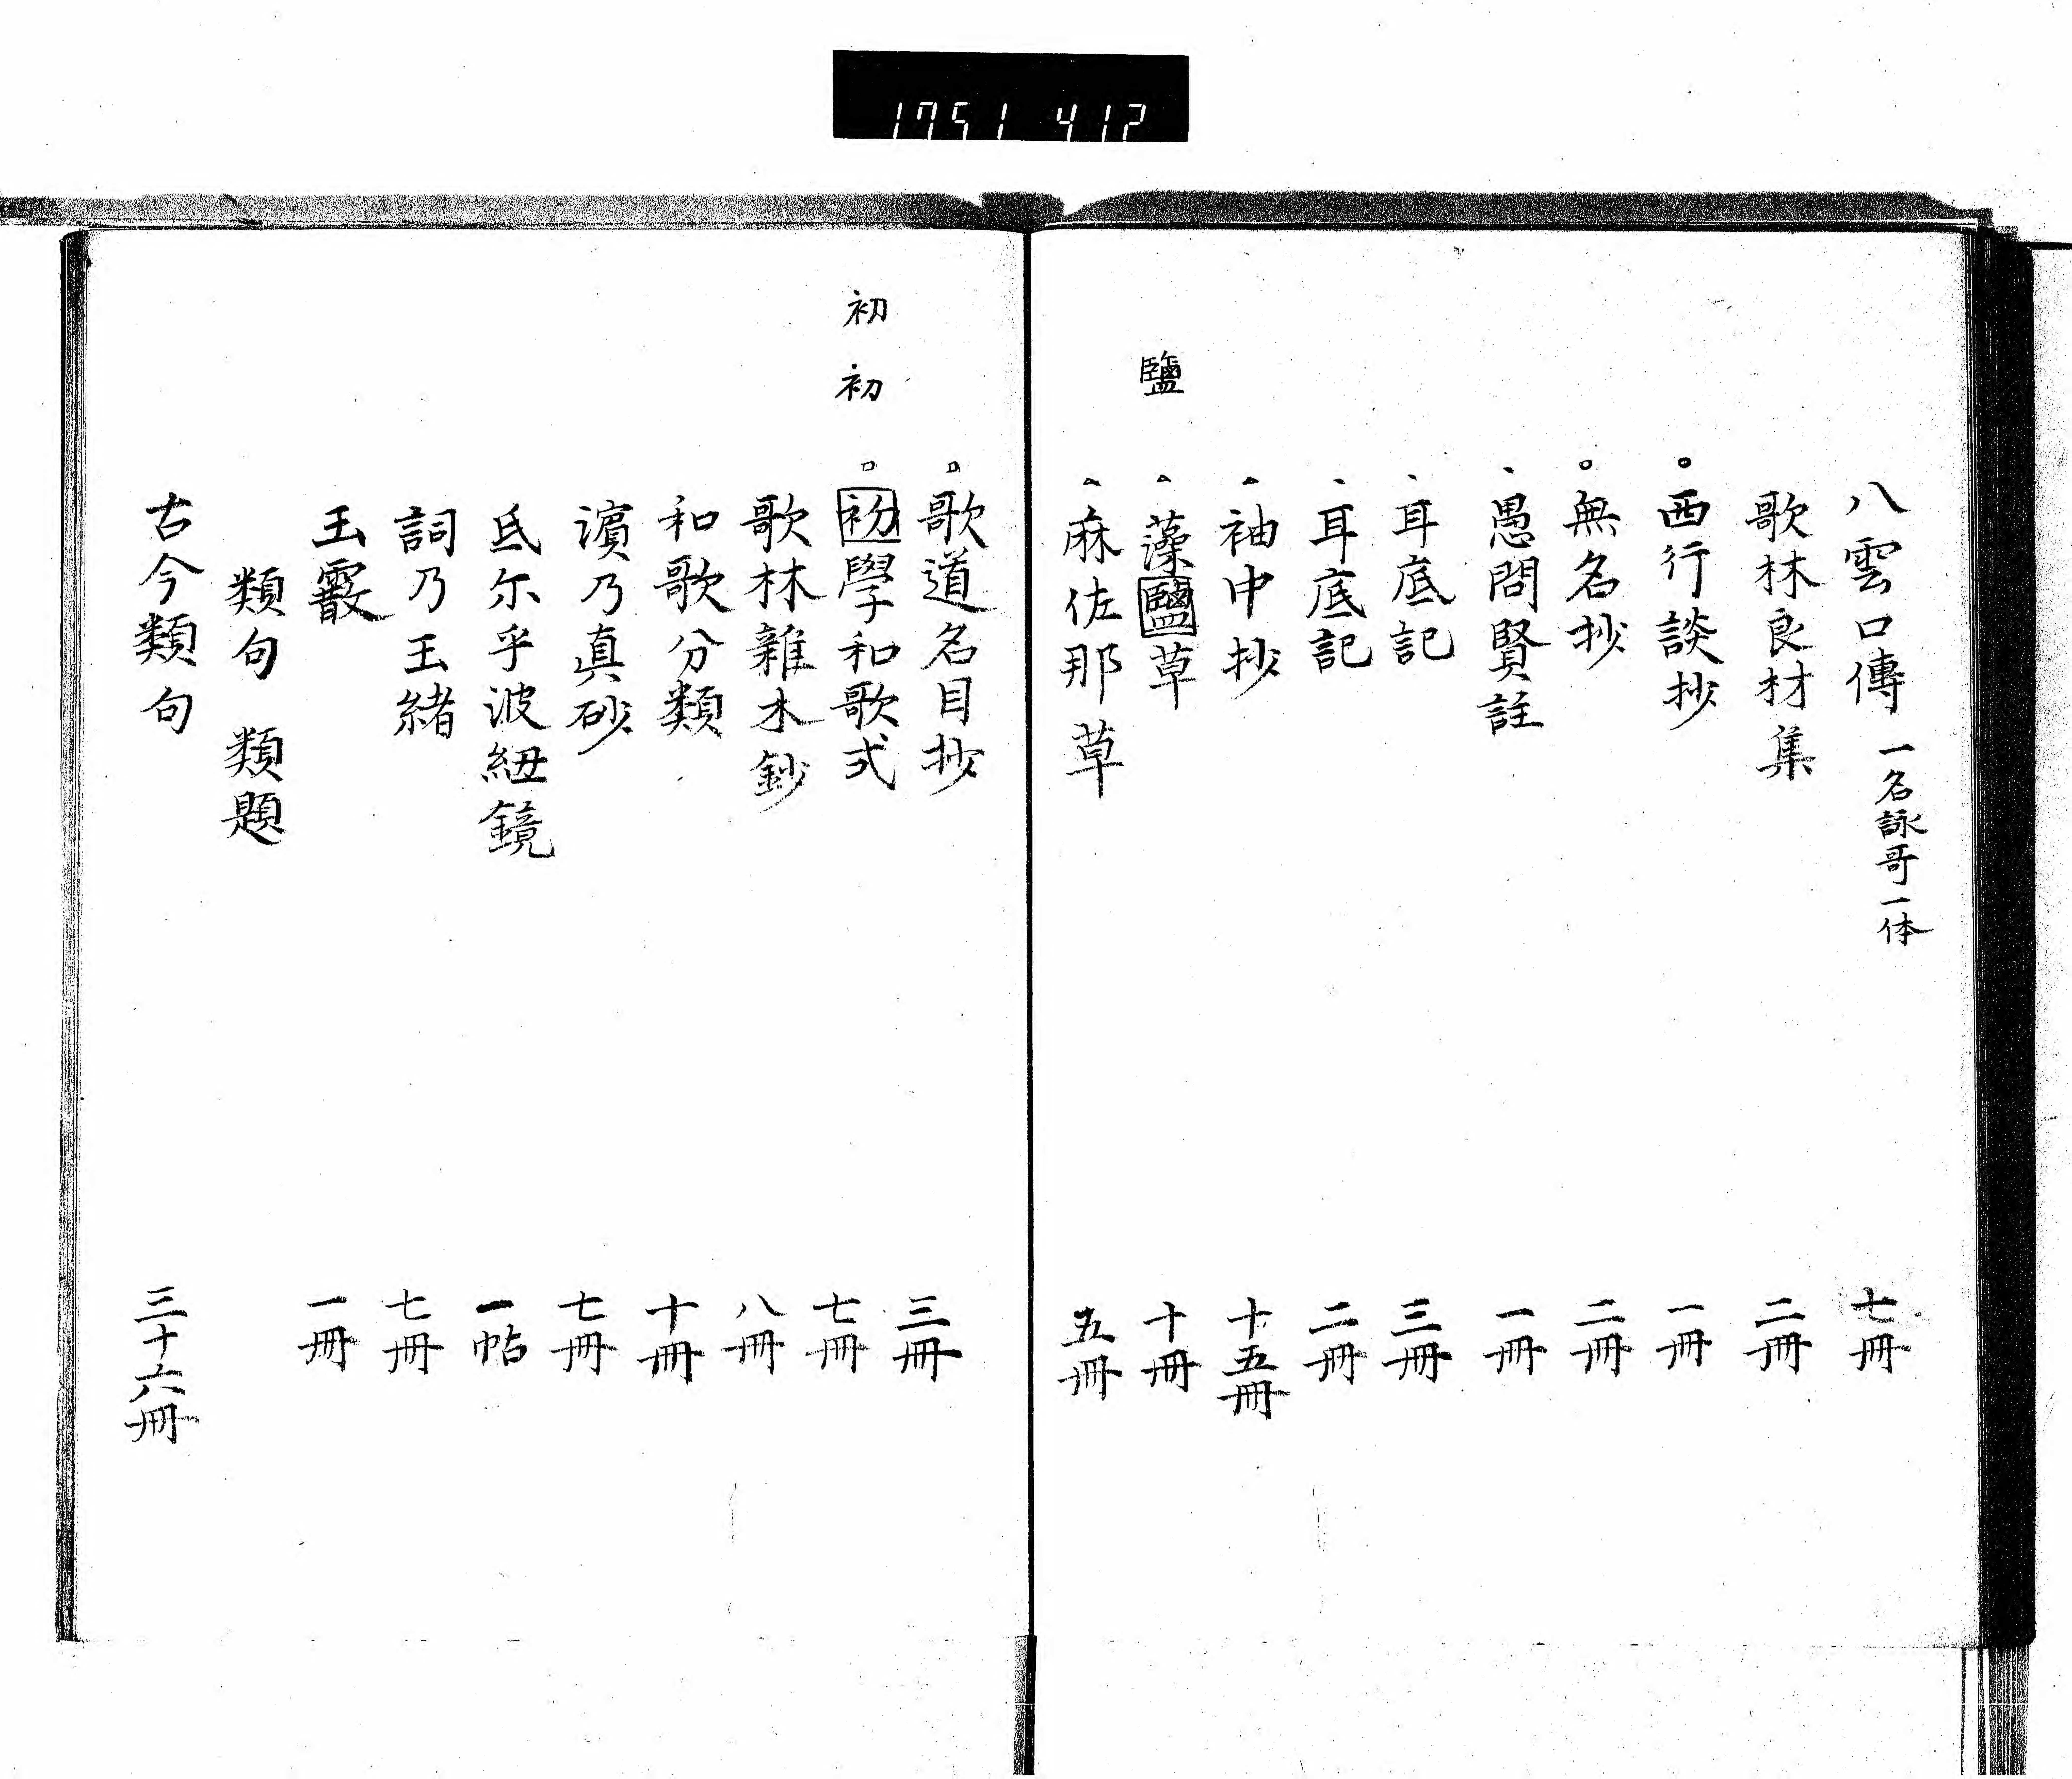 1751 412
八雲口傳 一名詠哥一体 七冊
歌林良材集 二冊
西行談抄 一冊
無名抄 二冊
愚問賢註 一冊
耳底記 三冊
耳底記 二冊
袖中抄 十五冊
鹽
藻鹽草 十冊
麻佐那草 五冊
歌道名目抄 三冊
初
初
初學和歌式 七冊
歌林雜木鈔 八冊
和歌分類 十冊
濵乃真砂 七冊
氐尓乎波紐鏡 一帖
詞乃玉緒 七冊
玉霰 一冊
類句 類題
古今類句 三十六冊